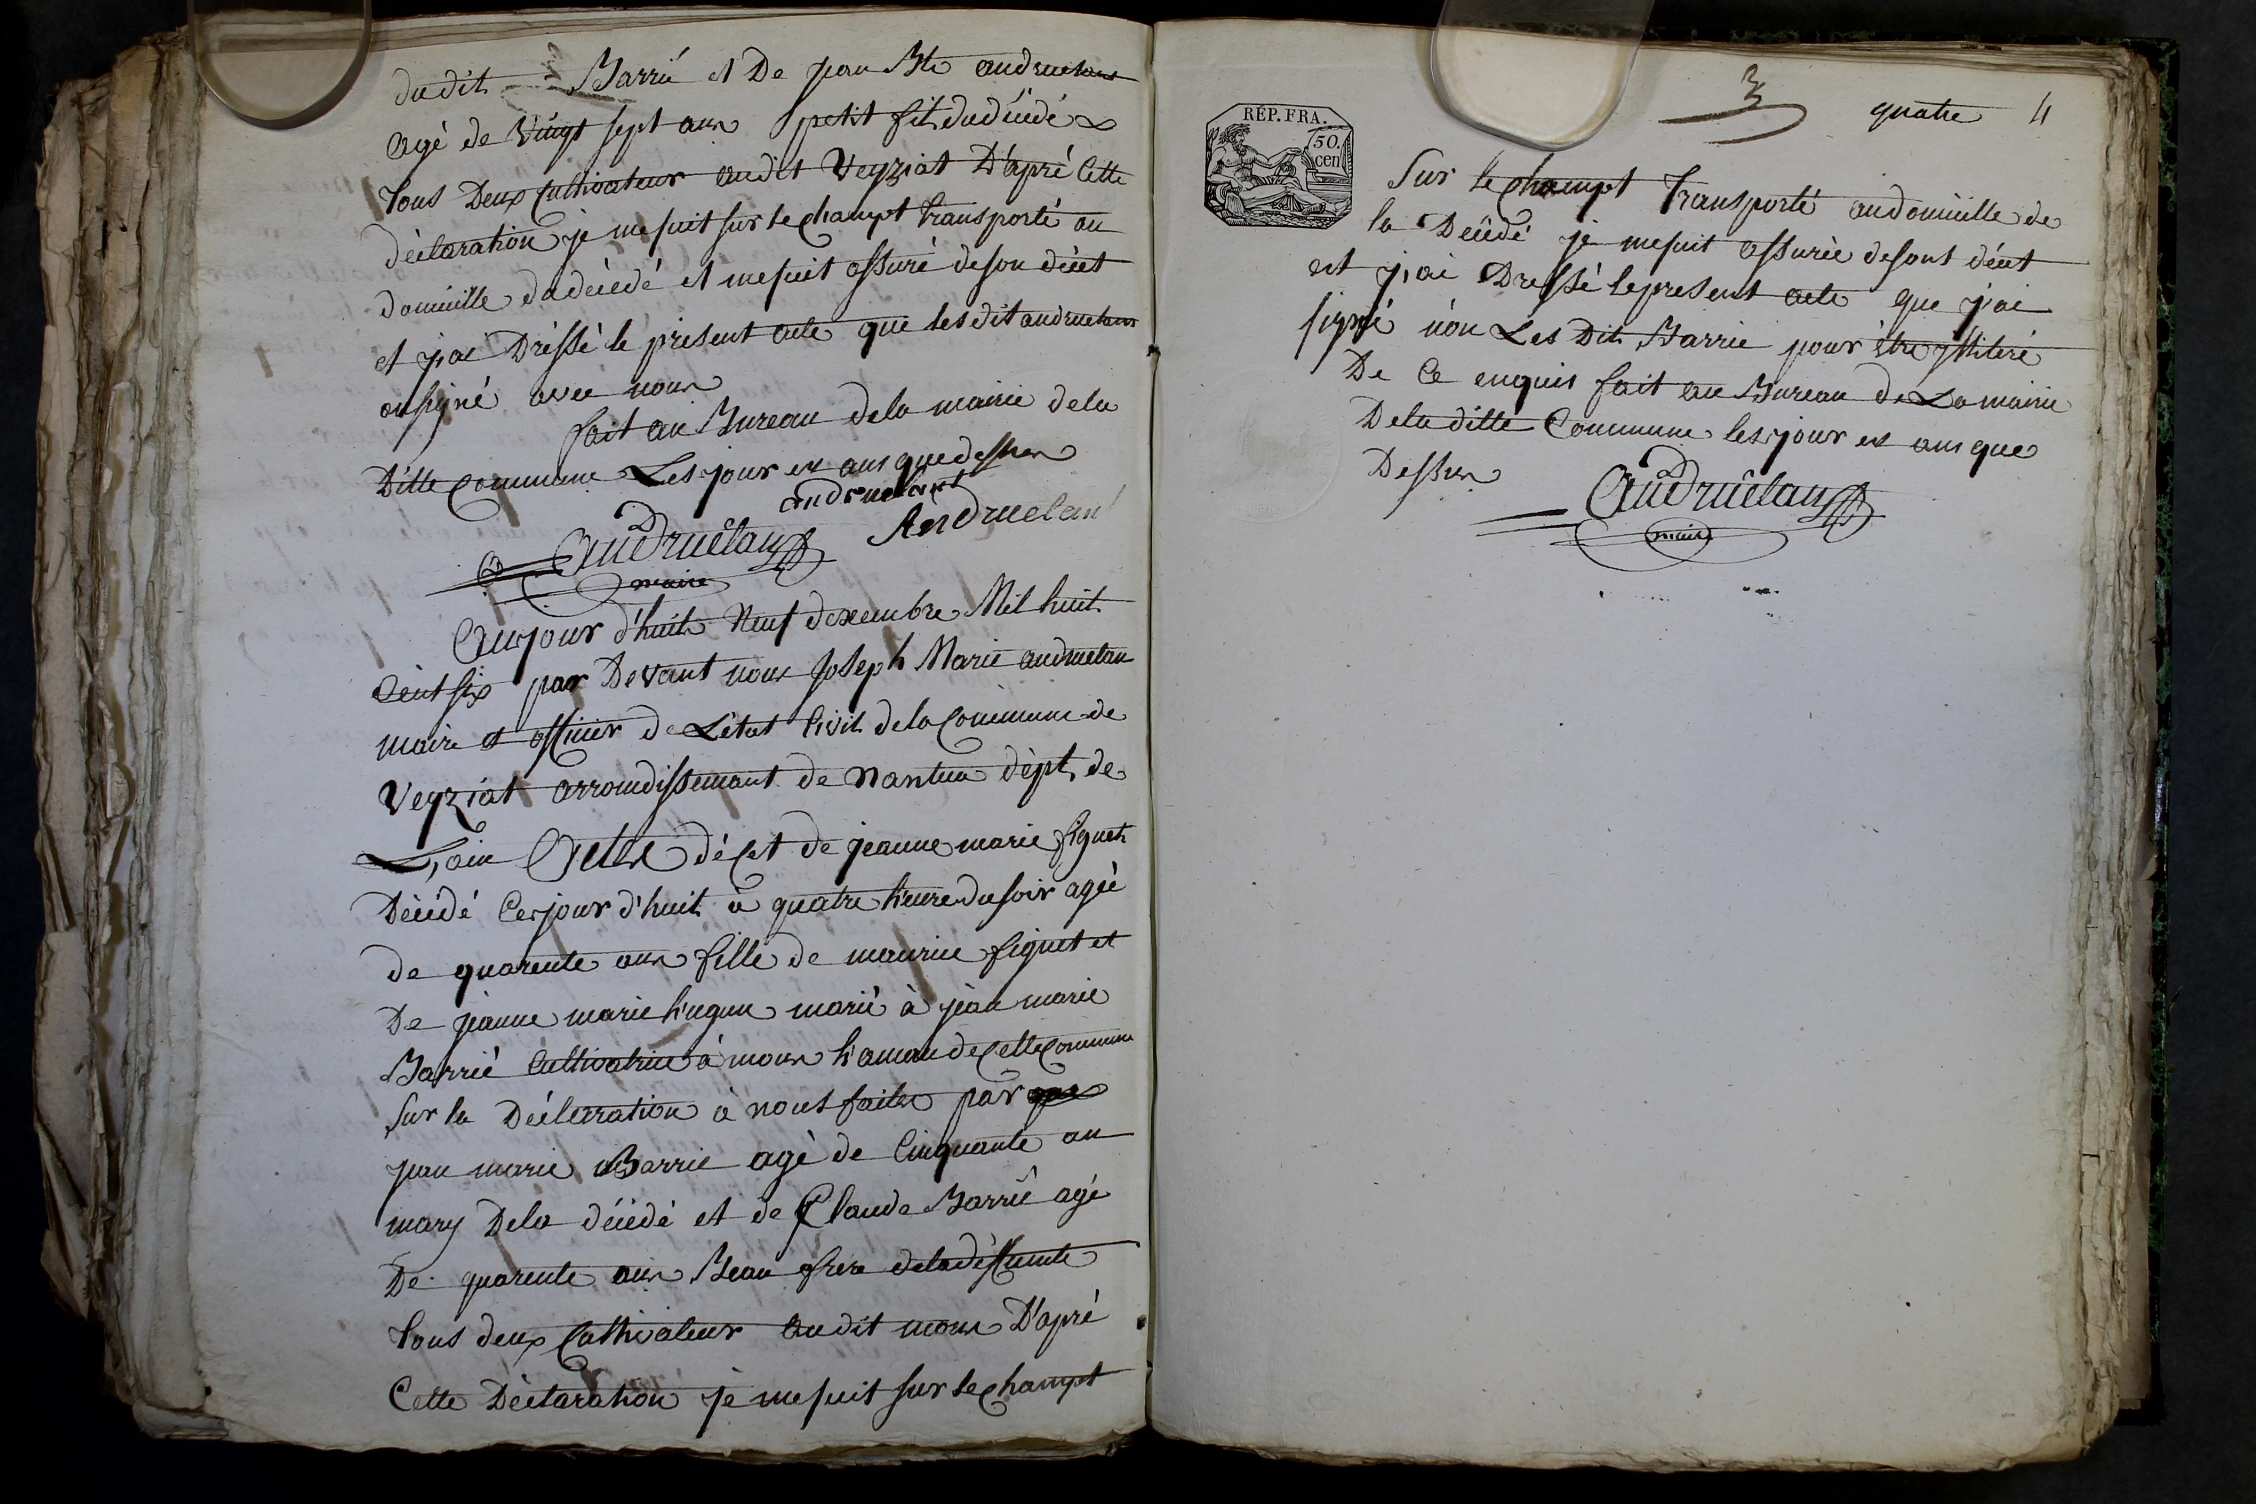 dudit Barrié et De jean Bte andruetans
agé de Vingt sept ans petit fil du décédé &
tous Deux Cultivateur audit Veyziat D'apré Cette
déclaration je me suit sur le champt transporté au
domicille du décédé et me suit assuré de son décét
et jai Dréssé le présent acte que lesdit andruetans
on signé avec nous
fait au Bureau dela mairie dela
Ditte Commune Les jour et ans que dessus
andruetant
Andruetan
Andruétan
maire
Cejour d'huit Neuf dexembre Mil huit
Cent six par Devant nous Joseph Marie andruetan
maire et officier de L'état Civil dela Commune de
Veyziat arrondissemant de Nantua dépt. de
L,ain Acte décet de jeanne marie figuet
Décédé Cejour d'huit à quatre heure du soir agée
de quarente ans fille de maurice figuet et
De jeanne marie hugon marié à jean marie
Barrié Cultivatrice à mons hamau de Cette Commune
Sur la Déclerration à nous faite par
jean marie Barrié agé de Cinquante an
mary Dela décédé et de Claude Barrié agé
De quarente ans Beau frere de la déffunte
tous deux Cultivateur audit mons D'apré
Cette Déclaration je me suit sur le champt
RÉP. FRA.
50.
cen
3
quatre 4
Sur le champt transporté au domicille de
la Décédé je me suit assurée de sont décét
et j'ai Dressé le present acte que j'ai
signé nón Les Dit Barrié pour être illiteré
De Ce enquis fait au Bureau de La mairie
Dela ditte Commune les jour et ans que
Dessus
Andruétan
maire